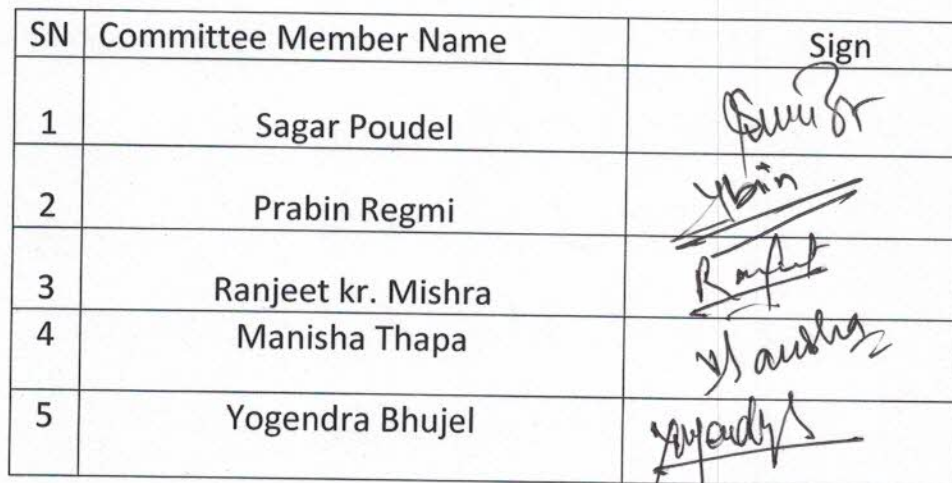 SN Committee Member Name Sign
1 Sagar Poudel
2 Prabin Regmi
3 Ranjeet kr. Mishra Ranjeet
4 Manisha Thapa Manisha
5 Yogendra Bhujel Yogendra